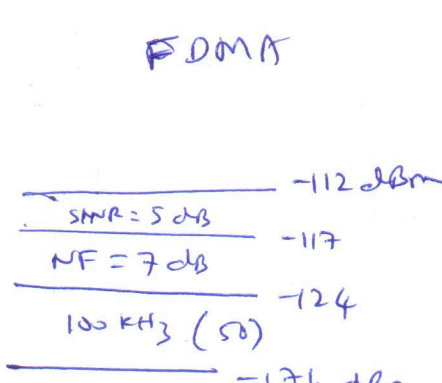 FDMA
-112 dBm
SNR = 5 dB
-117
NF = 7 dB
-124
100 KHz (50)